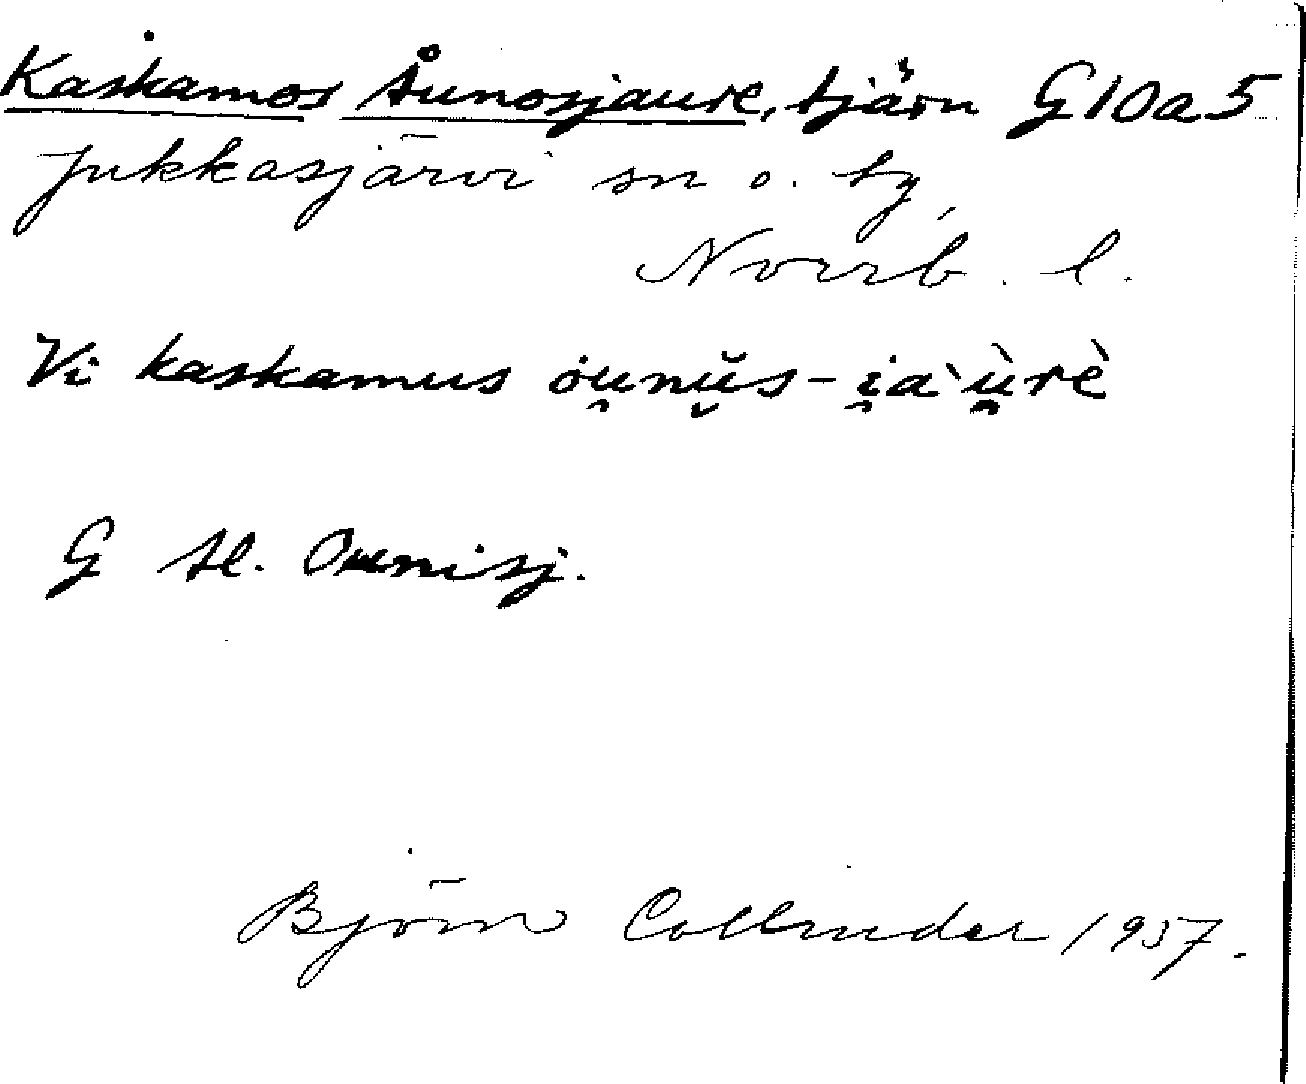 Kaskamos Åunosjaure, tjärn G10a5
Jukkasjärvi sn o. by,
Norrb. l.
Vi kaskamus ou̯nŭs-i̯àù̯rè
G st. Ounisj.
Björn Collinder 1957.